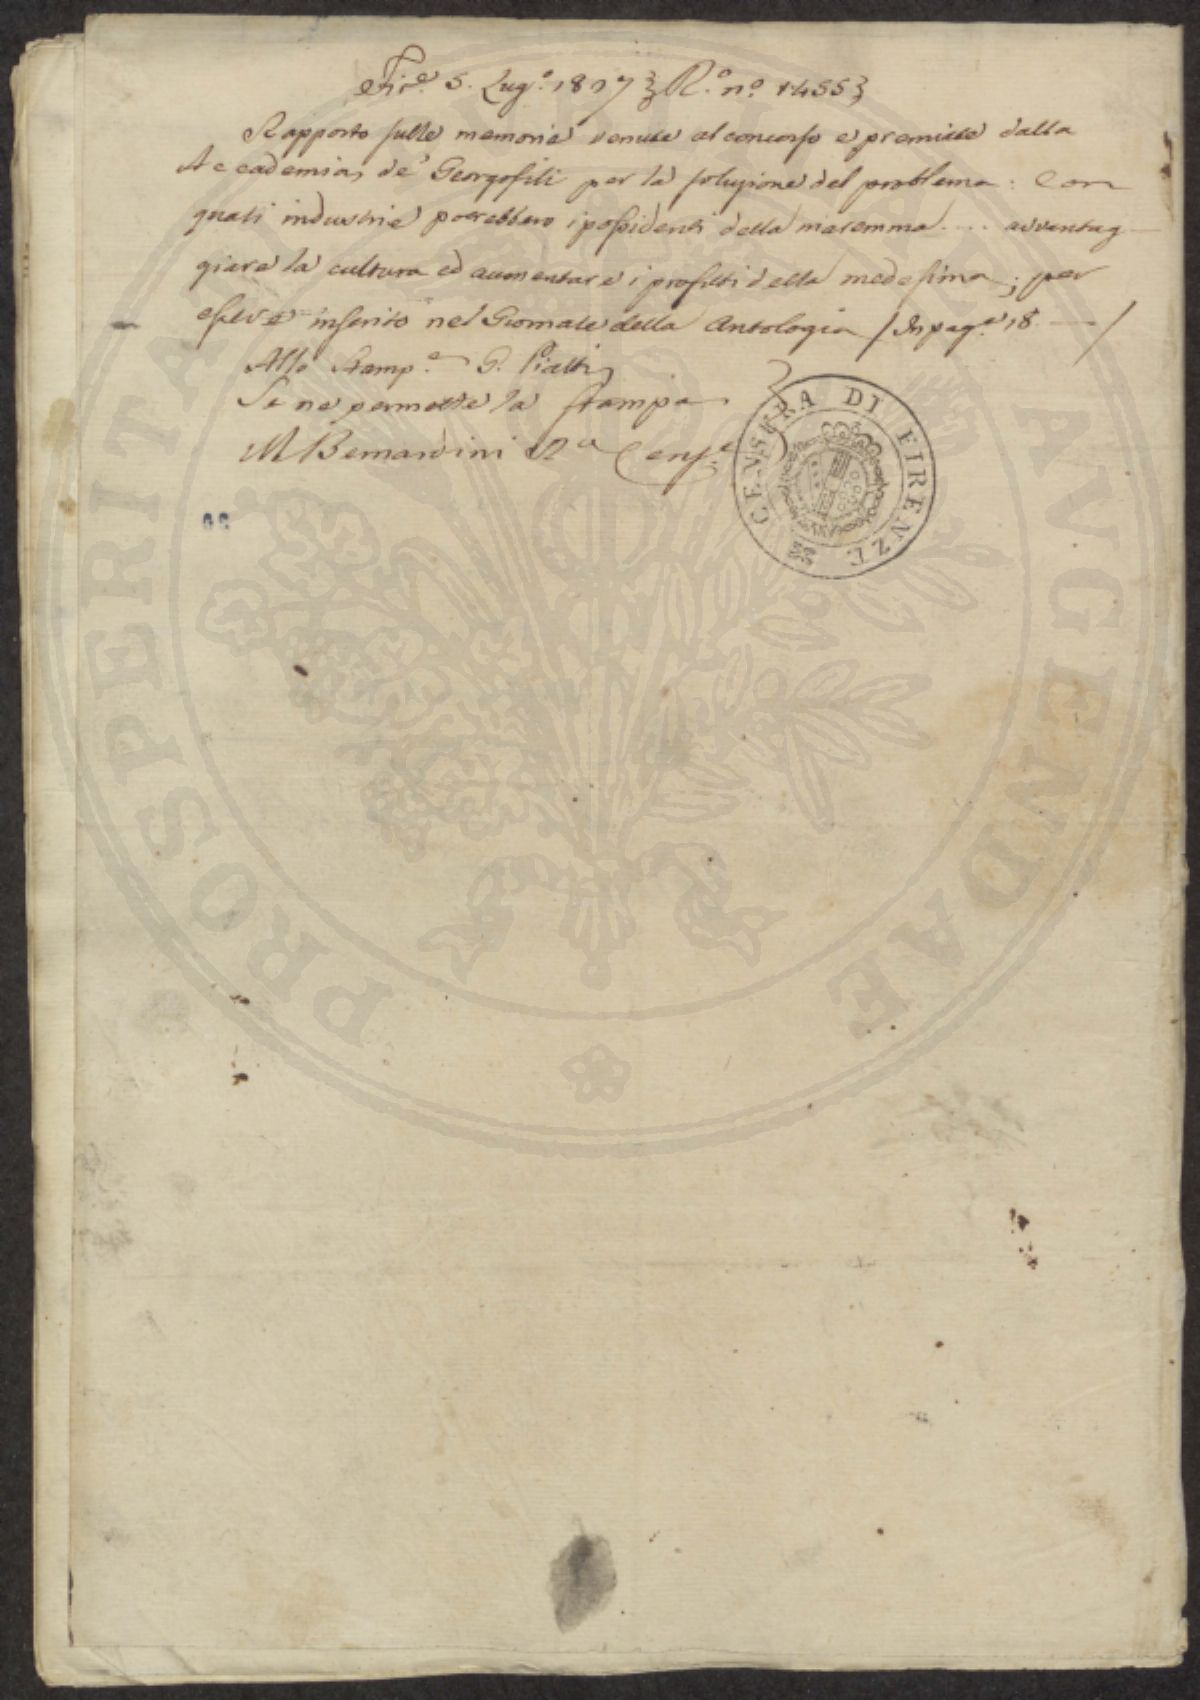 Fir.e 5. Lug.o 1827 } R.o n.o 1455 }
Rapporto sulle memorie venute al concorso e premiate dalla
Accademia de' Georgofili per la soluzione del problema: Con
quali industrie potrebbero i possidenti della maremma .... avvantag-
giare la cultura ed aumentare i profitti della medesima; per
essere inserito nel Giornale della Antologia / In pag.e 18. — /
Allo Stamp.e G. Piatti
Se ne permette la stampa
M Bernardini Cens.e
CENSURA DI FIRENZE
PROSPERITATI AVGENDAE